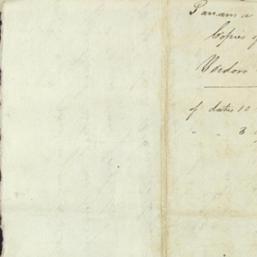 Panama
Copies of
of dates 10
" " 3